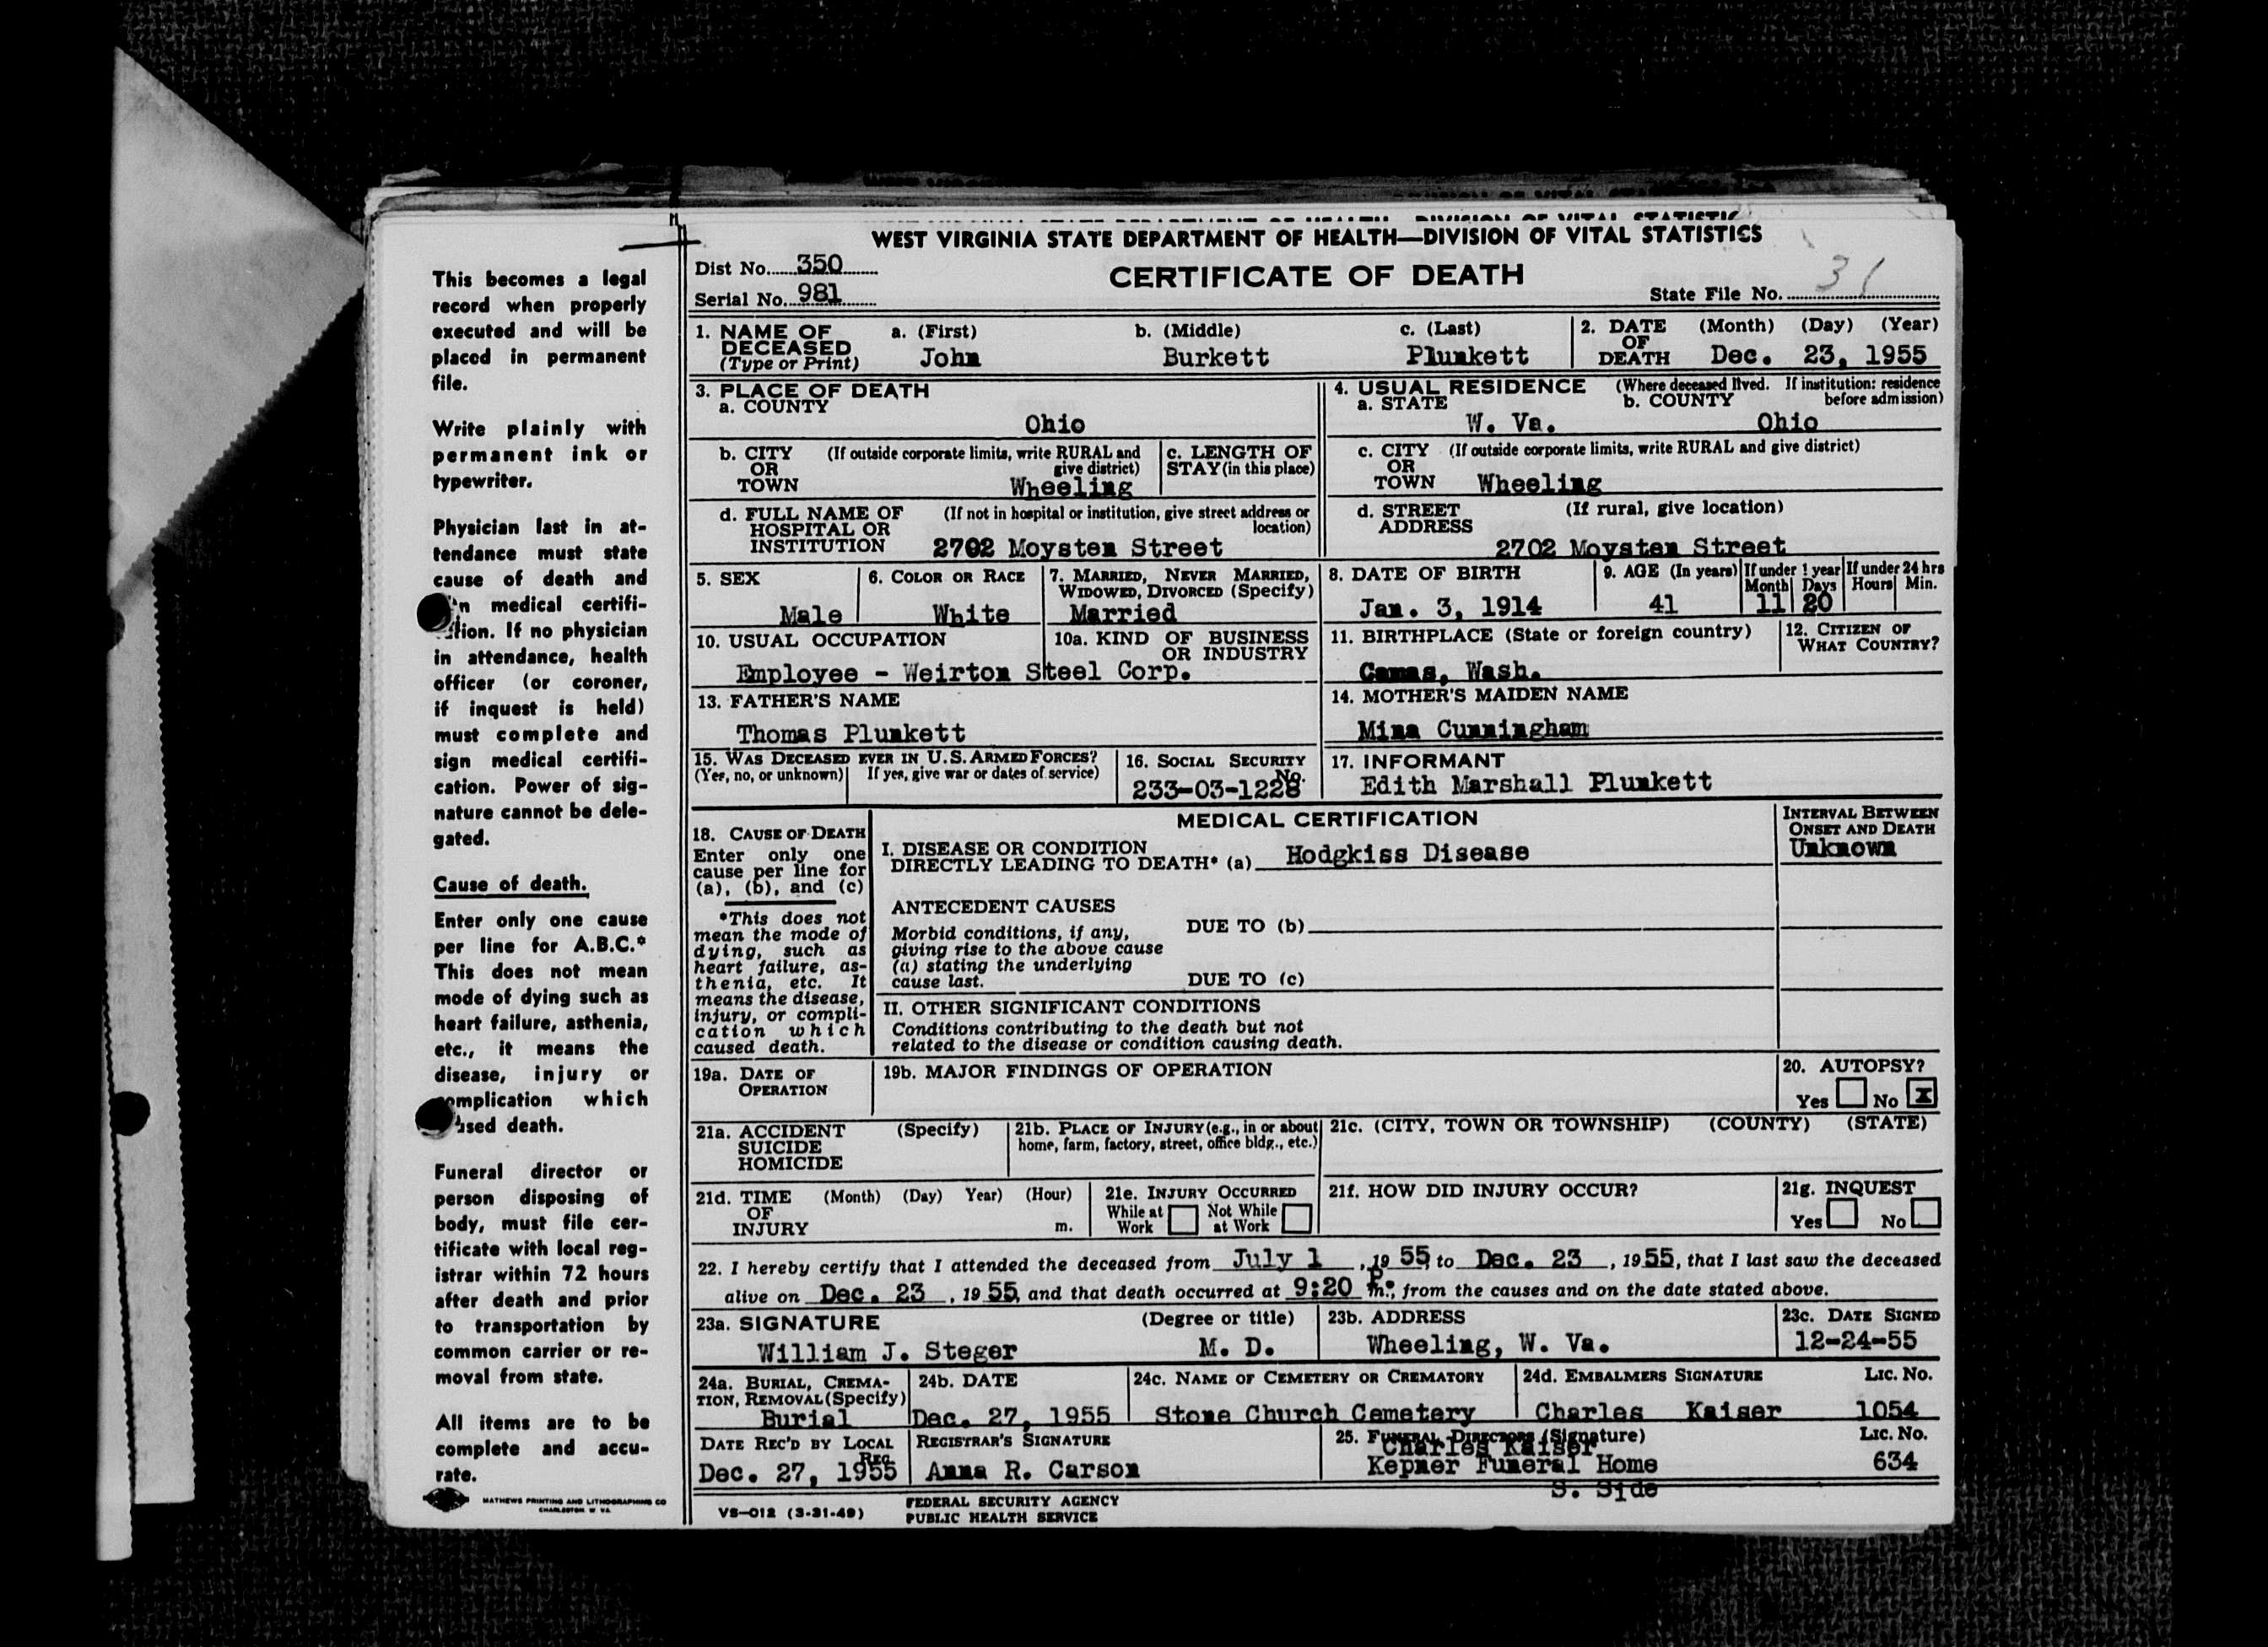 WEST VIRGINIA STATE DEPARTMENT OF HEALTH—DIVISION OF VITAL STATISTICS
CERTIFICATE OF DEATH
Dist No. 350
Serial No. 981
State File No. 31
This becomes a legal
record when properly
executed and will be
placed in permanent
file.
Write plainly with
permanent ink or
typewriter.
Physician last in at-
tendance must state
cause of death and
medical certifi-
tion. If no physician
in attendance, health
officer (or coroner,
if inquest is held)
must complete and
sign medical certifi-
cation. Power of sig-
nature cannot be dele-
gated.
Cause of death.
Enter only one cause
per line for A.B.C.*
This does not mean
mode of dying such as
heart failure, asthenia,
etc., it means the
disease, injury or
omplication which
used death.
Funeral director or
person disposing of
body, must file cer-
tificate with local reg-
istrar within 72 hours
after death and prior
to transportation by
common carrier or re-
moval from state.
All items are to be
complete and accu-
rate.
MATHEWS PRINTING AND LITHOGRAPHING CO
CHARLESTON W VA.
1. NAME OF DECEASED (Type or Print) a. (First) b. (Middle) c. (Last)
John Burkett Plunkett
2. DATE OF DEATH (Month) (Day) (Year)
Dec. 23, 1955
3. PLACE OF DEATH
a. COUNTY
Ohio
4. USUAL RESIDENCE (Where deceased lived. If institution: residence before admission)
a. STATE b. COUNTY
W. Va. Ohio
b. CITY OR TOWN (If outside corporate limits, write RURAL and give district)
Wheeling
c. LENGTH OF STAY (in this place)
c. CITY OR TOWN (If outside corporate limits, write RURAL and give district)
Wheeling
d. FULL NAME OF HOSPITAL OR INSTITUTION (If not in hospital or institution, give street address or location)
2702 Moysten Street
d. STREET ADDRESS (If rural, give location)
2702 Moysten Street
5. SEX
Male
6. COLOR OR RACE
White
7. MARRIED, NEVER MARRIED, WIDOWED, DIVORCED (Specify)
Married
8. DATE OF BIRTH
Jan. 3, 1914
9. AGE (In years)
41
If under 1 year Month Days
11 20
If under 24 hrs Hours Min.
10. USUAL OCCUPATION
10a. KIND OF BUSINESS OR INDUSTRY
Employee - Weirton Steel Corp.
11. BIRTHPLACE (State or foreign country)
Camas, Wash.
12. CITIZEN OF WHAT COUNTRY?
13. FATHER'S NAME
Thomas Plunkett
14. MOTHER'S MAIDEN NAME
Mina Cunningham
15. WAS DECEASED EVER IN U.S. ARMED FORCES?
(Yes, no, or unknown) If yes, give war or dates of service)
16. SOCIAL SECURITY No.
233-03-1228
17. INFORMANT
Edith Marshall Plunkett
MEDICAL CERTIFICATION
18. CAUSE OF DEATH
Enter only one
cause per line for
(a), (b), and (c)
*This does not
mean the mode of
dying, such as
heart failure, as-
thenia, etc. It
means the disease,
injury, or compli-
cation which
caused death.
I. DISEASE OR CONDITION
DIRECTLY LEADING TO DEATH* (a) Hodgkiss Disease
INTERVAL BETWEEN ONSET AND DEATH
Unknown
ANTECEDENT CAUSES
Morbid conditions, if any,
giving rise to the above cause
(a) stating the underlying
cause last.
DUE TO (b)
DUE TO (c)
II. OTHER SIGNIFICANT CONDITIONS
Conditions contributing to the death but not
related to the disease or condition causing death.
19a. DATE OF OPERATION
19b. MAJOR FINDINGS OF OPERATION
20. AUTOPSY?
Yes No X
21a. ACCIDENT SUICIDE HOMICIDE (Specify)
21b. PLACE OF INJURY (e.g., in or about
home, farm, factory, street, office bldg., etc.)
21c. (CITY, TOWN OR TOWNSHIP) (COUNTY) (STATE)
21d. TIME OF INJURY (Month) (Day) Year) (Hour) m.
21e. INJURY OCCURRED
While at Work Not While at Work
21f. HOW DID INJURY OCCUR?
21g. INQUEST
Yes No
22. I hereby certify that I attended the deceased from July 1, 1955 to Dec. 23, 1955, that I last saw the deceased
alive on Dec. 23, 1955, and that death occurred at 9:20 P. m., from the causes and on the date stated above.
23a. SIGNATURE (Degree or title)
William J. Steger M. D.
23b. ADDRESS
Wheeling, W. Va.
23c. DATE SIGNED
12-24-55
24a. BURIAL, CREMA-
TION, REMOVAL (Specify)
Burial
24b. DATE
Dec. 27, 1955
24c. NAME OF CEMETERY OR CREMATORY
Stone Church Cemetery
24d. EMBALMERS SIGNATURE LIC. NO.
Charles Kaiser 1054
DATE REC'D BY LOCAL REG.
Dec. 27, 1955
REGISTRAR'S SIGNATURE
Anna R. Carson
25. FUNERAL DIRECTORS (Signature) LIC. NO.
Charles Kaiser
Kepner Funeral Home 634
S. Side
VS—012 (3-31-49)
FEDERAL SECURITY AGENCY
PUBLIC HEALTH SERVICE